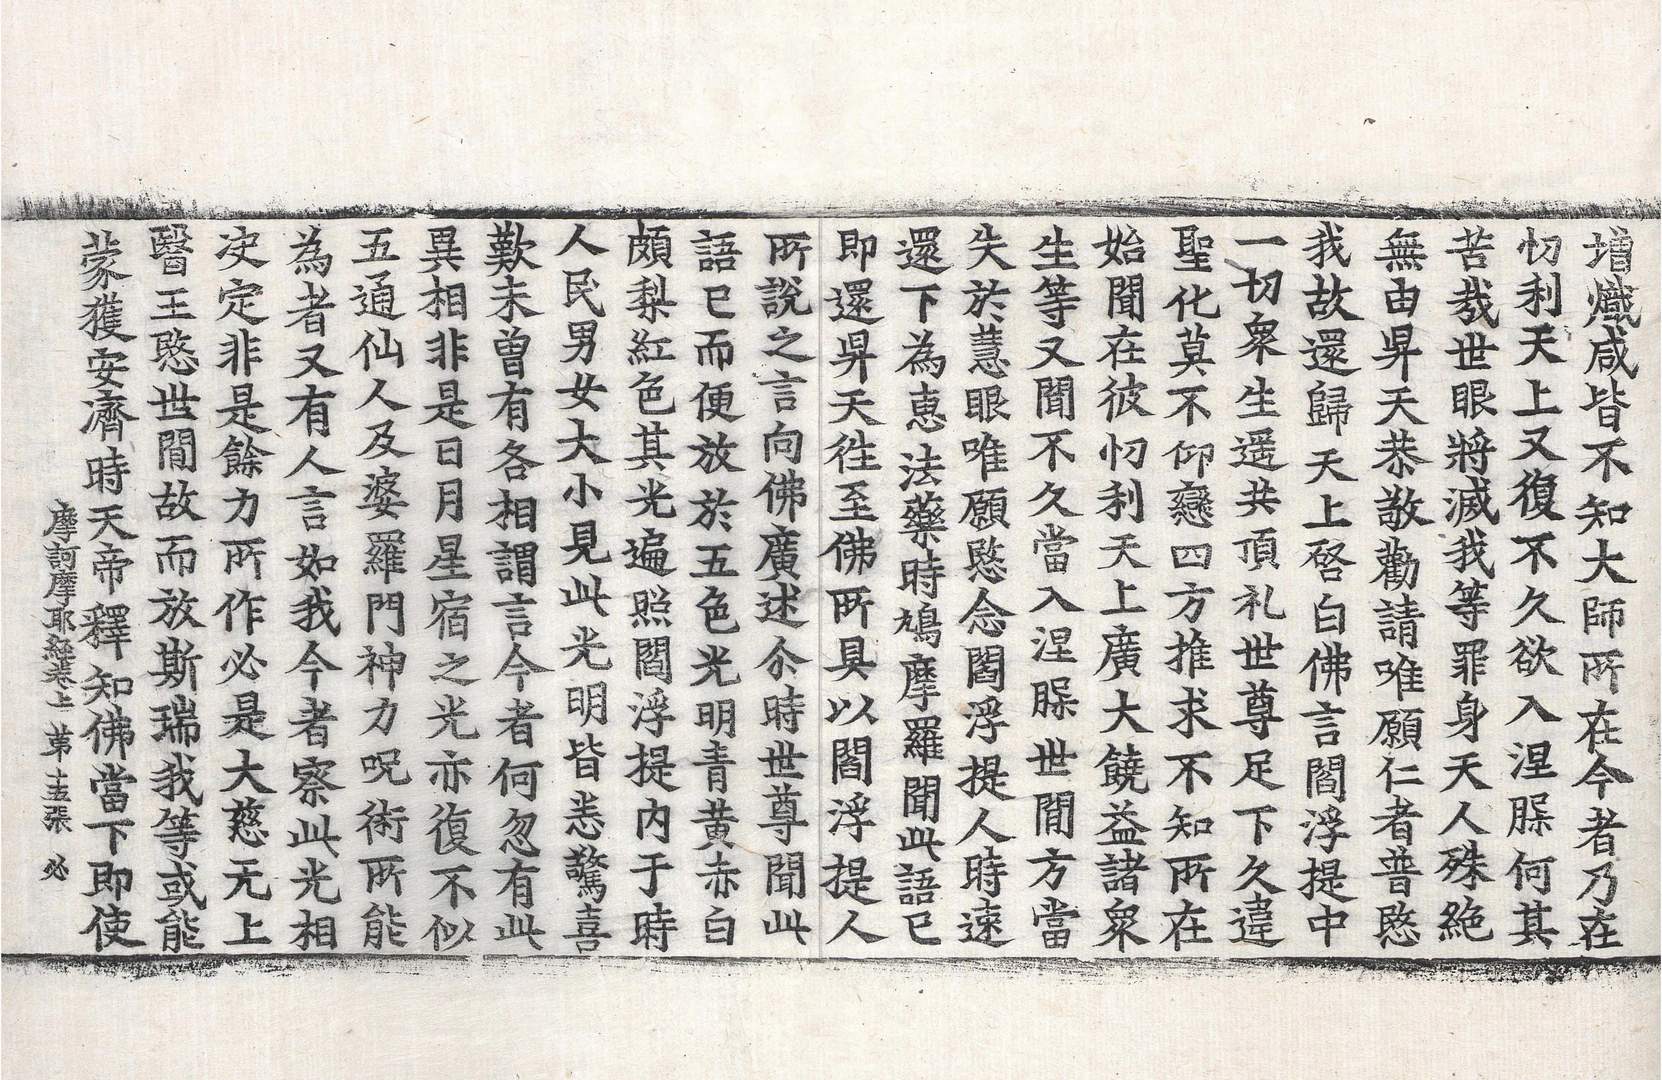 增熾咸皆不知大師所在今者乃在
忉利天上又復不久欲入涅槃何其
苦哉世眼將滅我等罪身天人殊絶
無由昇天恭敬勸請唯願仁者普愍
我故還歸天上啓白佛言閻浮提中
一切衆生遥共頂礼世尊足下久違
聖化莫不仰戀四方推求不知所在
始聞在彼忉利天上廣大饒益諸衆
生等又聞不久當入涅槃世間方當
失於慧眼唯願愍念閻浮提人時速
還下為惠法藥時鳩摩羅聞此語已
即還昇天往至佛所具以閻浮提人
所說之言向佛廣述尒時世尊聞此
語已而便放於五色光明青黄赤白
頗梨紅色其光遍照閻浮提内于時
人民男女大小見此光明皆悉驚喜
歎未曾有各相謂言今者何忽有此
異相非是日月星宿之光亦復不似
五通仙人及婆羅門神力呪術所能
為者又有人言如我今者察此光相
决定非是餘力所作必是大慈无上
醫王愍世間故而放斯瑞我等或能
蒙獲安濟時天帝釋知佛當下即使
摩訶摩耶經卷上 第十五張 必